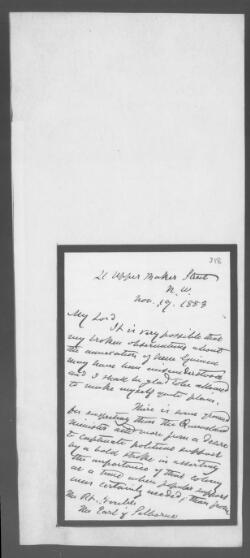 21 Upper Baker Street
N.W.
Nov. 19. 1883
My Lord
It is very possible that
my broken observations about
the annexation of New Guinea
may have been misunderstood
and I shall be glad to be allowed
to make myself quite plain.
There is some ground
for suspecting from the Queensland
Ministry acted more from a desire
to captivate political support
by a bold stroke in asserting
the importance of that colony
at a time when popular support
was certainly needed, than from
The Rt. Honble
The Earl of